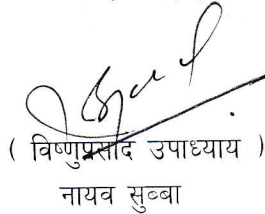 ( विष्णुप्रसाद उपाध्याय )
नायव सुब्बा